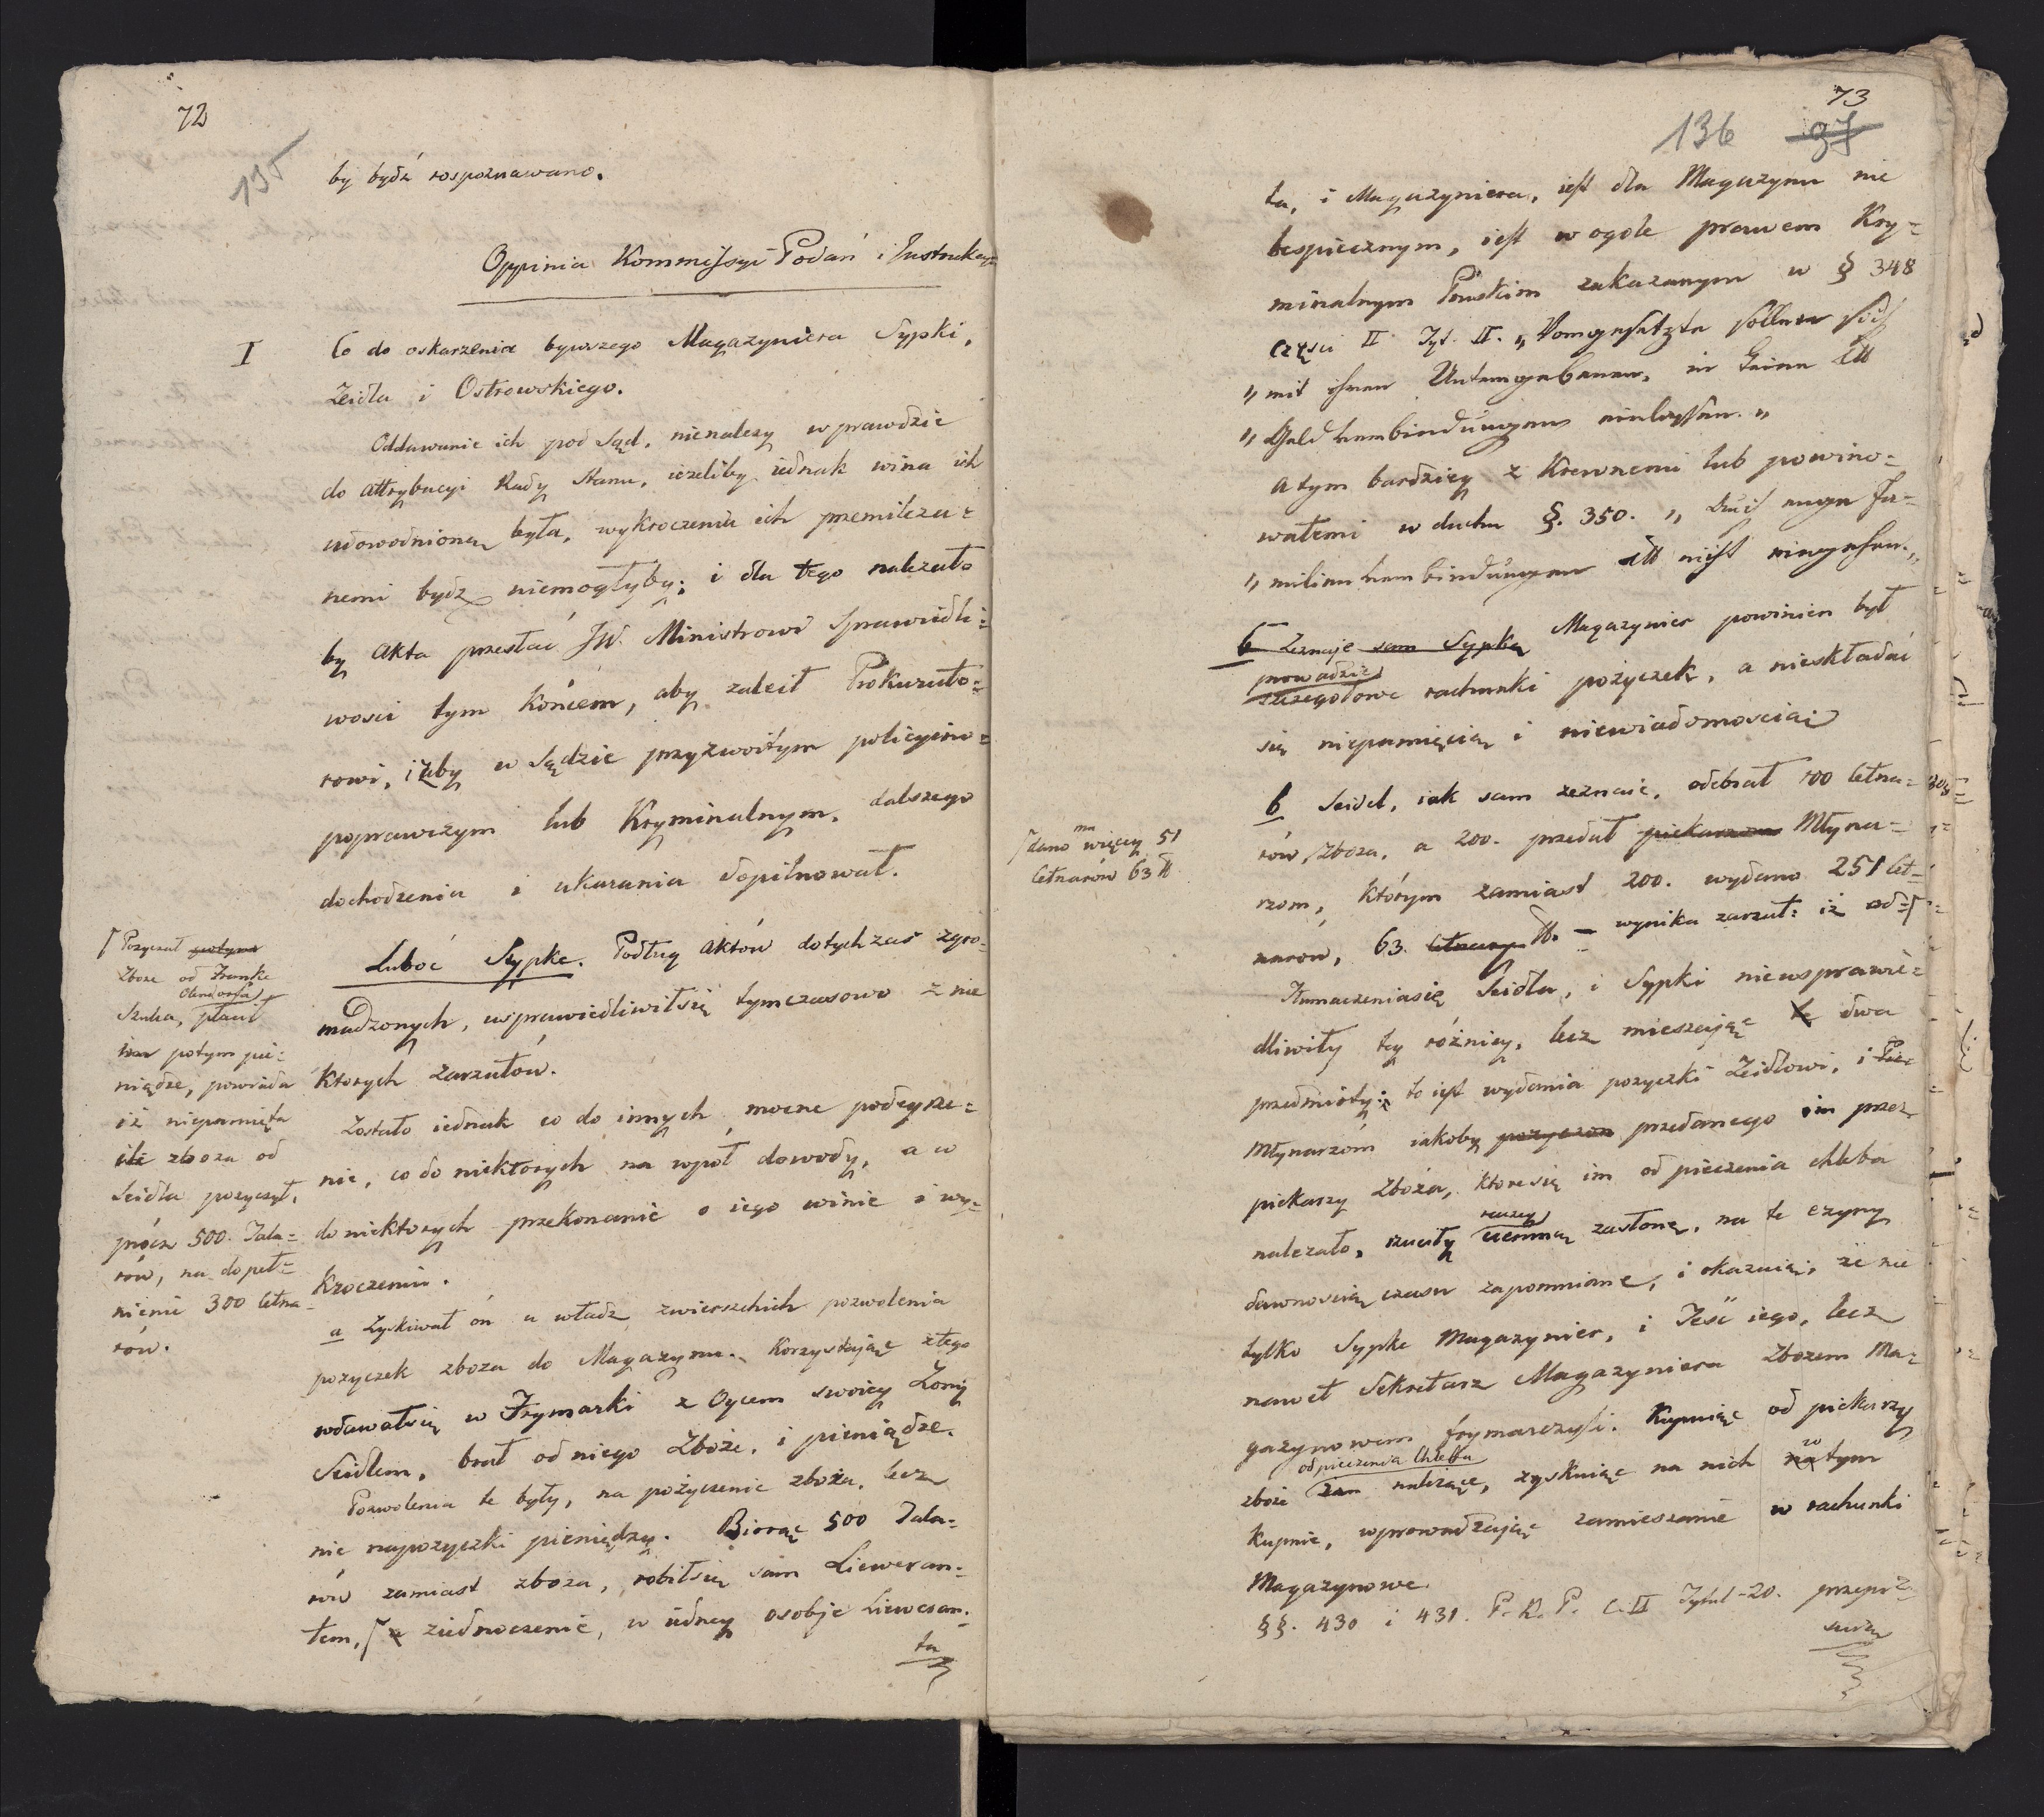 72
135
by bydź rospoznawano.
Oppinia Kommissyi Podań i Instrukcyi
I
Co do oskarzenia bywszego Magazyniera Sypki,
Zeidla i Ostrowskiego.
Oddawanie ich pod Sąd, nienalezy wprawdzie
do attrybucyi Rady Stanu, iezeliby iednak wina ich
udowodnioną była, wykroczenia ich przemilcza=
nemi bydz niemogłyby; i dla tego nalezało
by Akta przesłać JW. Ministrowi Sprawiedli=
wosci tym końcem, aby zalecił Prokurato=
rowi, izby w Sądzie przyzwoitym policyino=
poprawczym lub Kryminalnym, dalszego
dochodzenia i ukarania dopilnował.
Luboć Sypke. Podług aktów dotychczas zgro=
madzonych, usprawiedliwiłsię tymczasowo z nie
ktorych zarzutów.
Zostało iednak co do innych mocne podeyrze=
nie, co do niektorych na wpoł dowody, a co
do niektorych przekonanie o iego winie i wy=
kroczeniu.
a Zyskiwał on u władz zwierzchnich pozwolenia
pozyczek zboza do Magazynu. Korzystaiąc ztego
wdawałsię w Frymarki z Oycem swoiey Zony
Seidlem, brał od niego Zboże, i pieniądze.
Pozwolenia te były, na pożyczenie zboża, lecz
nie napozyczki pieniędzy. Biorąc 500 Tala=
rów zamiast zboza, robiłsię sam Liweran=
tem, ziednoczenie, w iedney osobie Liweran=
ta
Pozyczał
Zboze od Franke
Szulca, płacił
potym pie=
niądze, powiada
iż niepamięta
ile zboza od
Seidla pozyczył,
prócz 500. Tala=
rów, na dopeł=
nienie 300 Cetna=
rów.
73
136 37
ta, i Magazyniera, iest dla Magazynu nie
bespiecznym, iest wogole prawem Kry=
minalnym Pruskim zakazanym w § 348
części II Tyt. II. „Vorgesetzte sollen sich
„mit ihren Untergebenen, in keine
„Geldverbindungen einlassen.„
a tym bardziey z Krewnemi lub powino=
watemi w duchu §. 350. „ enge Fa=
„milienverbindungen nicht eingehen.„
b Zeznaje sam Sypke Magazynier powinien był
prowadzić
szczegołowe rachunki pożyczek, a nieskładać
się niepamięcią i niewiadomoscią
b Seidel, iak sam zeznaie, odebrał 500 Cetna=
rów zboza, a 200. przedał piekarzom Młyna=
rzom, którym zamiast 200. wydano 251 Cet=
narow, 63. Cetnary ℔. wynika zarzut: iż od
dano więcey 51
Cetnarów 63 ℔
Tłumaczeniasię Seidla, i Sypki nieusprawie=
dliwiły tey różnicy, lecz mieszaiąc te dwa
przedmioty; to iest wydania pozyczki Zeidlowi, i
Młynarzóm iakoby przedanego im przez
piekarzy Zboża, ktoresię im od pieczenia chleba
nalezało, rzuciły ciemną zasłonę, na te czyny
dawnoscią czasu zapomniane, i okazuią, że nie
tylko Sypke Magazynier, i Teść iego, lecz
nawet Sekretarz Magazyniera Zbozem Ma=
gazynowem frymarczyli. Kupuiąc od piekarzy
od pieczenia Chleba
zboże nalezące, zyskuiąc na nich na tym
kupnie, wprowadzaiąc zamieszanie w rachunki
Magazynowe.
§§. 430 i 431. P. K. P. C. II Tytul 20.